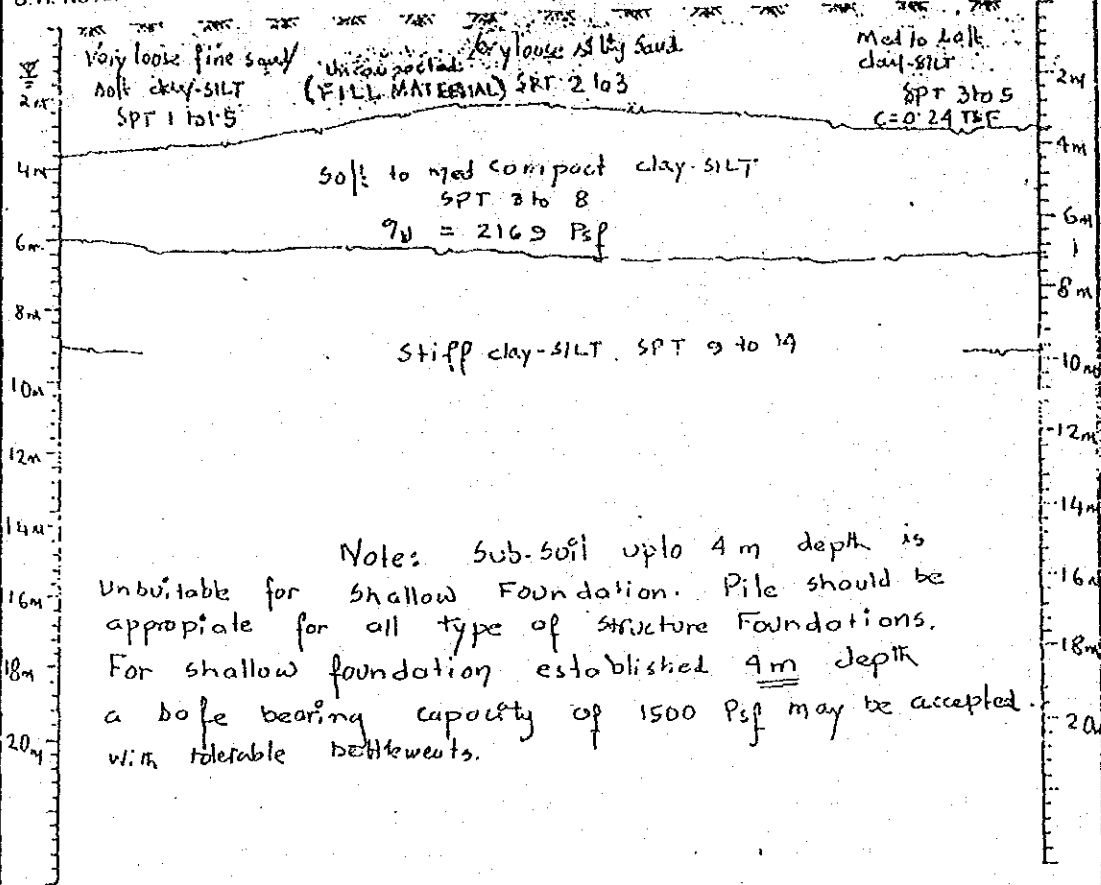 Very loose fine sand/
soft clay-SILT
SPT 1 to 1.5
Uncompacted
(FILL MATERIAL)
Very loose silty sand
SPT 2 to 3
Med to soft
clay-SILT
SPT 3 to 5
C=0.24 TSF
soft to med compact clay-SILT
SPT 3 to 8
= 2169 Psf
Stiff clay-SILT. SPT 9 to 14
Note: Sub-Soil upto 4 m depth is
Unsuitable for Shallow Foundation. Pile should be
appropiate for all type of structure Foundations.
For shallow foundation established 4m depth
a safe bearing capacity of 1500 Psf may be accepted.
with tolerable settlements.
2m
4m
6m
8m
10m
12m
14m
16m
18m
20m
2m
4m
6m
8m
10m
12m
14m
16m
18m
20m